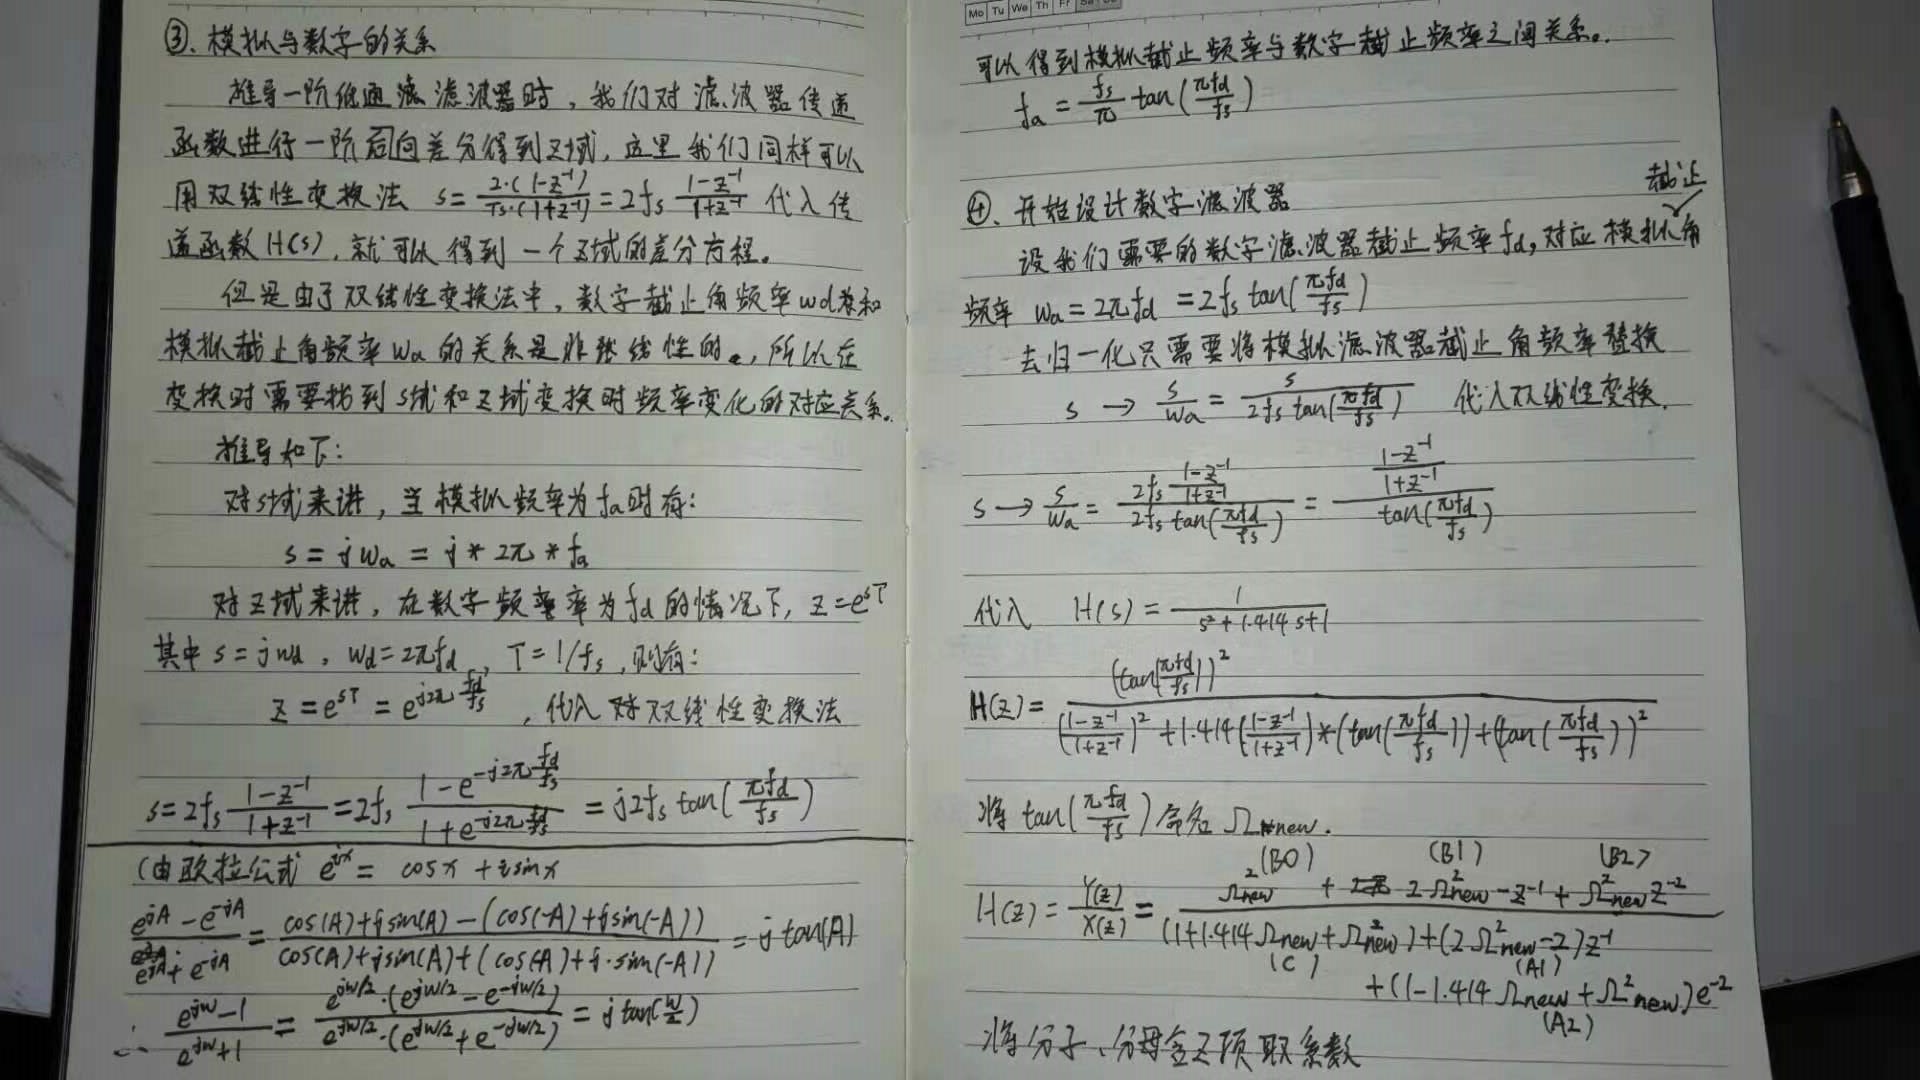 ③、模拟与数字的关系
推导一阶低通滤波器时，我们对滤波器传递
函数进行一阶后向差分得到Z域，这里我们同样可以
用双线性变换法 s=\frac{2·(1-z^{-1})}{Ts·(1+z^{-1})}=2fs\frac{1-z^{-1}}{1+z^{-1}} 代入传
递函数H(s)，就可以得到一个Z域的差分方程。
但是由于双线性变换法中，数字截止角频率wd和
模拟截止角频率wa的关系是非线性的，所以在
变换时需要找到s域和Z域变换时频率变化的对应关系。
推导如下：
对s域来讲，当模拟频率为fa时有：
s=jwa=j*2π*fa
对Z域来讲，在数字频率为fd的情况下，z=e^{sT}
其中s=jwd，wd=2πfd，T=1/fs，则有：
z=e^{sT}=e^{j2π\frac{fd}{fs}}，代入双线性变换法
s=2fs\frac{1-z^{-1}}{1+z^{-1}}=2fs\frac{1-e^{-j2π\frac{fd}{fs}}}{1+e^{-j2π\frac{fd}{fs}}}=j2fs tan(\frac{πfd}{fs})
(由欧拉公式 e^{ix}=cosx+isinx
\frac{e^{jA}-e^{-jA}}{e^{jA}+e^{-jA}}=\frac{cos(A)+jsin(A)-(cos(-A)+jsin(-A))}{cos(A)+jsin(A)+(cos(-A)+j·sin(-A))}=j tan(A)
∴\frac{e^{jw}-1}{e^{jw}+1}=\frac{e^{jw/2}·(e^{jw/2}-e^{-jw/2})}{e^{jw/2}·(e^{jw/2}+e^{-jw/2})}=j tan(\frac{w}{2})
Mo Tu We Th Fr Sa Su
可以得到模拟截止频率与数字截止频率之间关系。
fa=\frac{fs}{π}tan(\frac{πfd}{fs})
④、开始设计数字滤波器
截止
设我们需要的数字滤波器截止频率fd，对应模拟角
频率 wa=2πfd=2fs tan(\frac{πfd}{fs})
去归一化只需要将模拟滤波器截止角频率替换
s→\frac{s}{wa}=\frac{s}{2fs tan(\frac{πfd}{fs})} 代入双线性变换.
s→\frac{s}{wa}=\frac{2fs\frac{1-z^{-1}}{1+z^{-1}}}{2fs tan(\frac{πfd}{fs})}=\frac{\frac{1-z^{-1}}{1+z^{-1}}}{tan(\frac{πfd}{fs})}
代入 H(s)=\frac{1}{s^2+1.414s+1}
H(z)=\frac{(tan(\frac{πfd}{fs}))^2}{(\frac{1-z^{-1}}{1+z^{-1}})^2+1.414(\frac{1-z^{-1}}{1+z^{-1}})*(tan(\frac{πfd}{fs}))+(tan(\frac{πfd}{fs}))^2}
将tan(\frac{πfd}{fs})命名Ωnew.
(B0) (B1) (B2)
H(z)=\frac{Y(z)}{X(z)}=\frac{Ω^2new+2Ω^2new-z^{-1}+Ω^2new z^{-2}}{(1+1.414Ωnew+Ω^2new)+(2Ω^2new-2)z^{-1}
(C) (A1)
+(1-1.414Ωnew+Ω^2new)e^{-2}}
(A2)
将分子、分母含Z项取系数